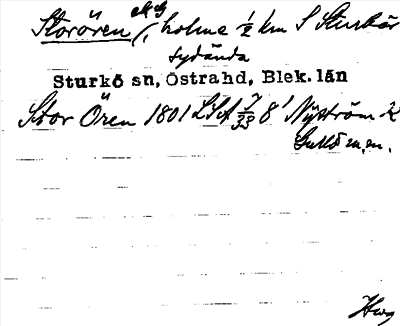 Storören, holme ½ km S Sturkös
sydända
Sturkö sn, Östrahd, Blek. län
Stor Ören 1801 LSA 7/33 8' Nyström
m.m.